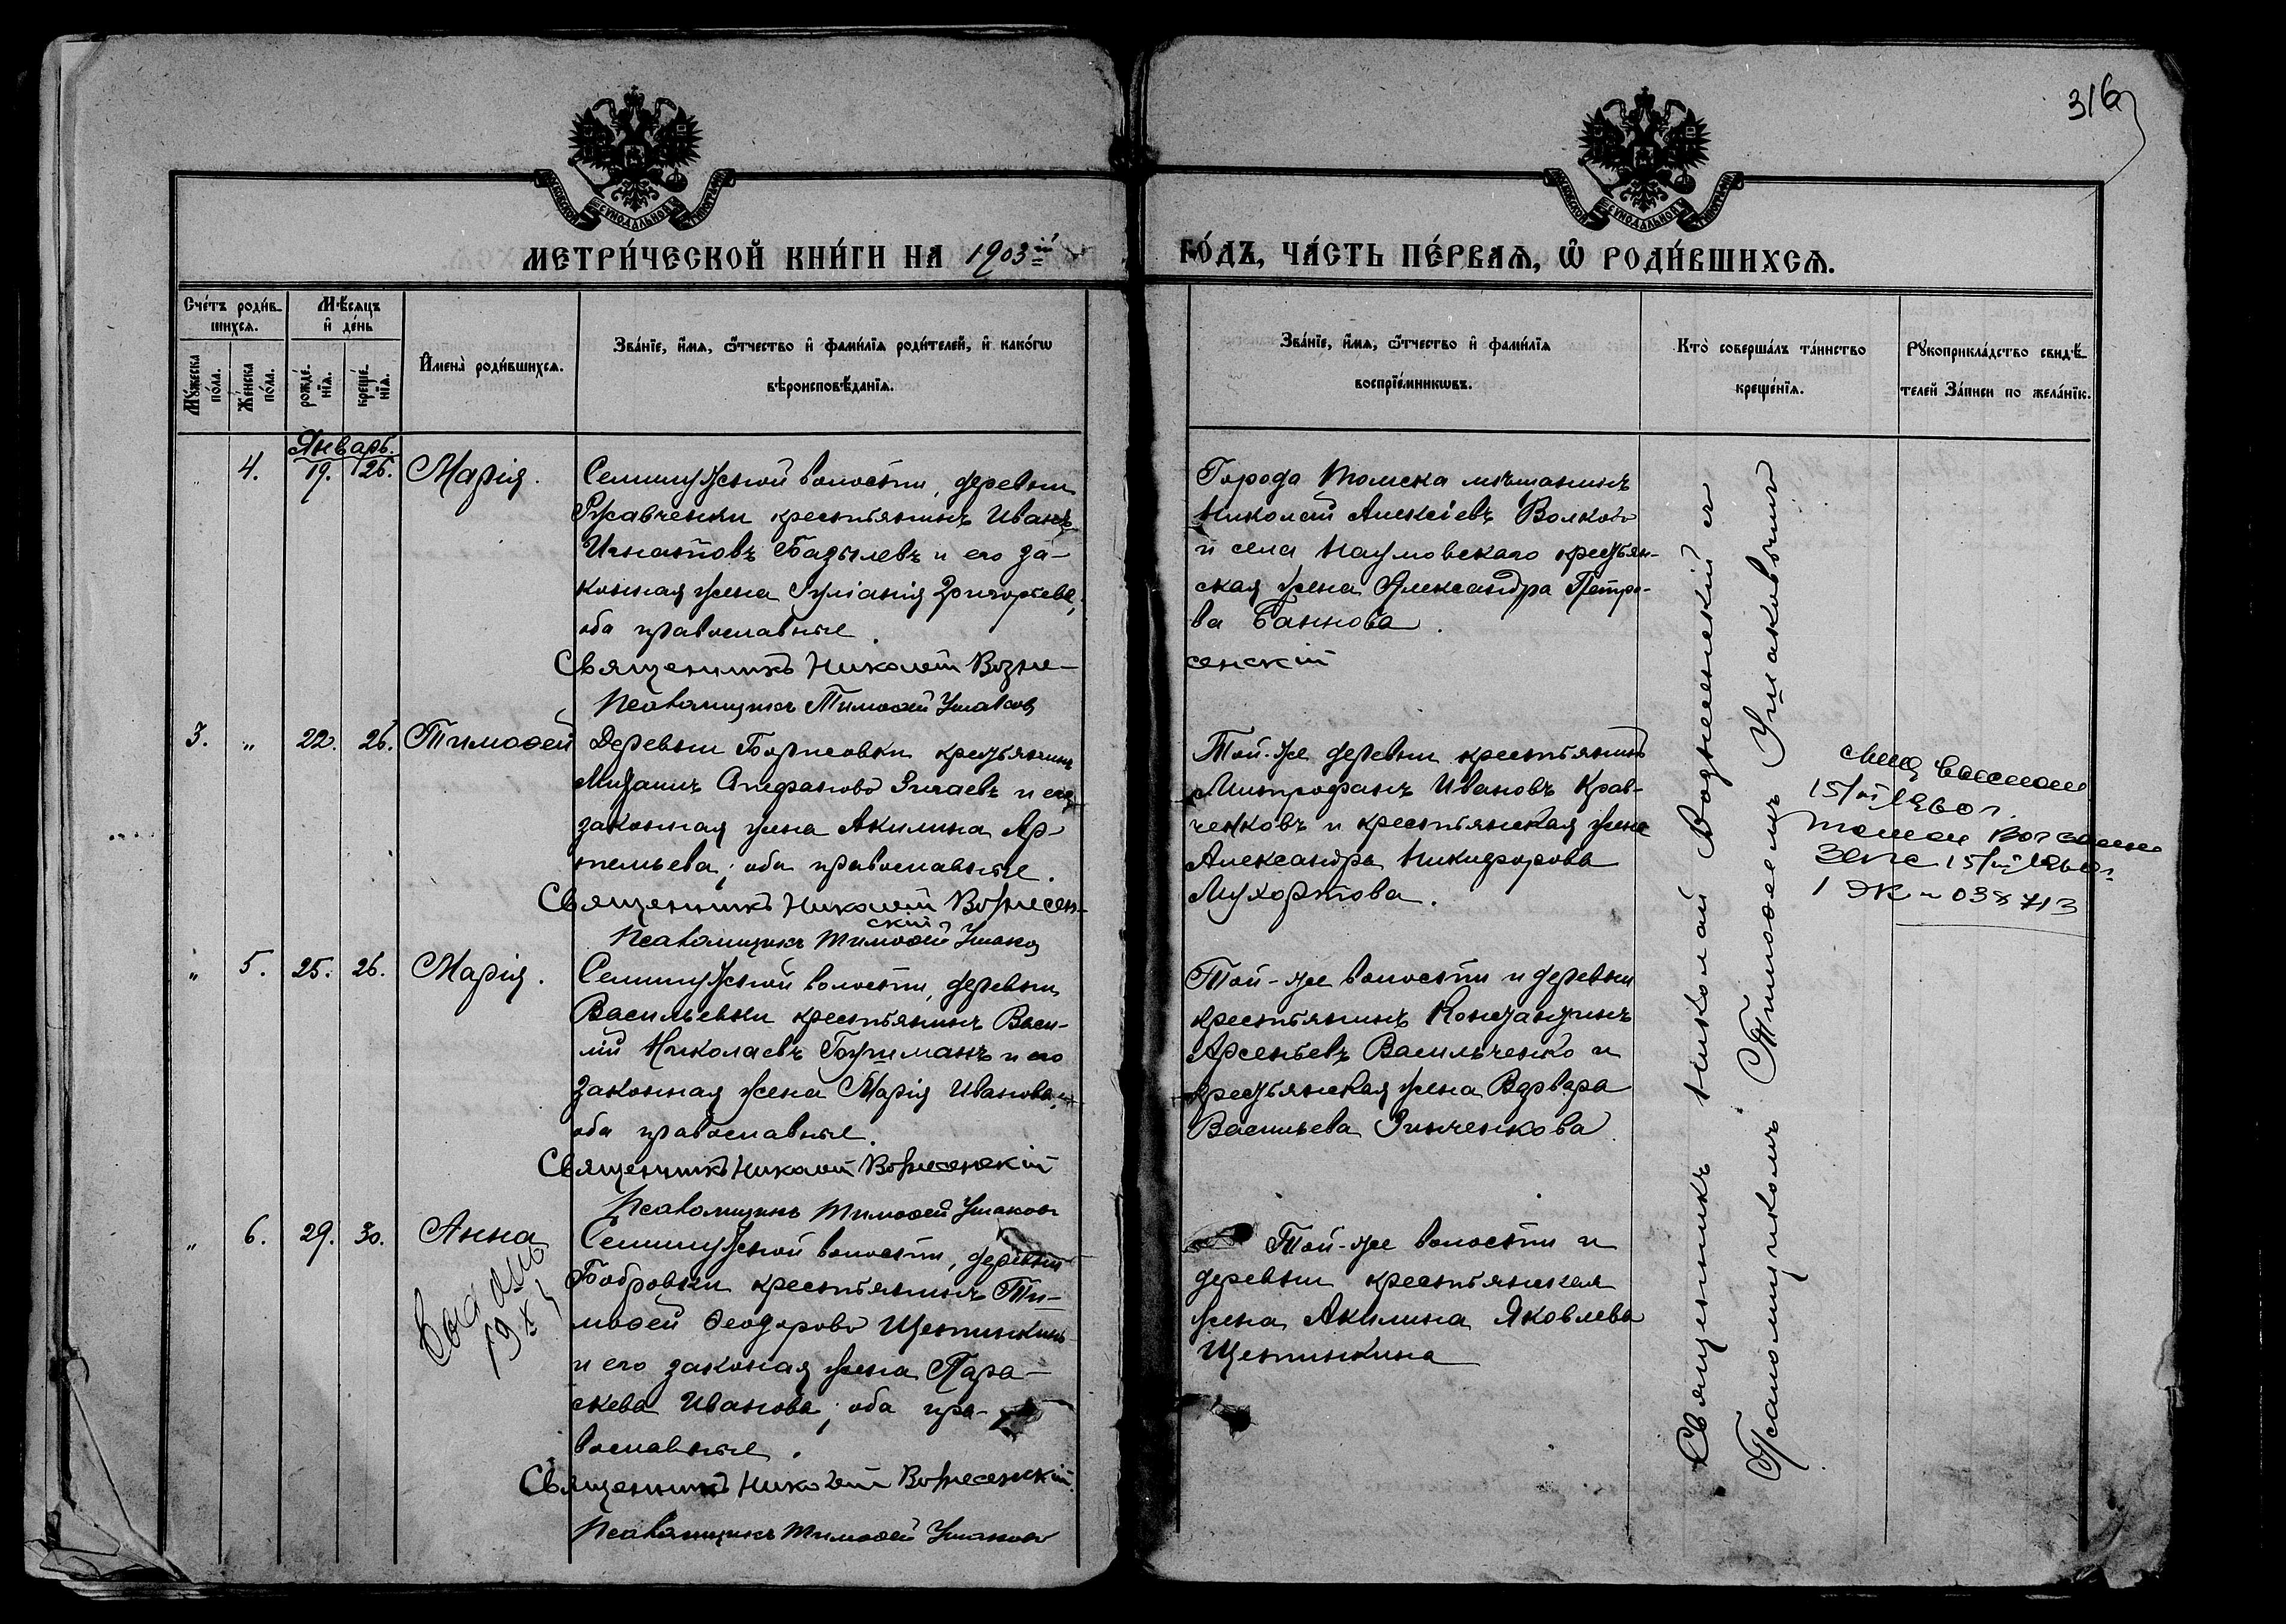 316
МЕТРИ́ЧЕСКОЙ КНИ́ГИ НА 1903 й ГО́ДЪ, ЧА́СТЬ ПЕ́РВАѦ, Ѡ҆ РОДИ́ВШИХСѦ.
Сче́тъ роди́в-
шихсѧ.
Мѣ́сѧцъ
и҆ де́нь
Мꙋ́жеска по́ла.
Же́нска по́ла.
рожде́-нїѧ.
креще́-нїѧ.
И҆мена̀ роди́вшихсѧ.
Зва́нїе, и҆́мѧ, ѻ҆́тчество и҆ фами́лїѧ роди́телей, и҆ како́гѡ
вѣроисповѣ́данїѧ.
Зва́нїе, и҆́мѧ, ѻ҆́тчество и҆ фами́лїѧ
воспрїе́мникѡвъ.
Кто̀ соверша́лъ та́инство
креще́нїѧ.
Рꙋкоприкла́дство свидѣ́-
телей За́писи по жела́нїю.
Январь.
4. 19. 26. Марія.
Семилужной волости, деревни
Ржавченки крестьянинъ Иванъ
Игнатовъ Базылевъ и его за-
конная жена Іуліанія Григорьева,
оба православные.
Священникъ Николай Возне-
сенскій
Псаломщикъ Тимоѳей Ушаковъ
Города Томска мѣщанинъ
Николай Алексіевъ Волковъ
и села Наумовскаго крестьян-
ская жена Александра Петро-
ва Баннова.
3. „ 22. 26. Тимоѳей
Деревни Борисовки крестьянинъ
Стефановъ и его
законная жена Акилина Ар-
темьева; оба православные.
Священникъ Николай Вознесен-
скій
Псаломщикъ Тимоѳей Ушаковъ
Той-же деревни крестьянинъ
Митрофанъ Ивановъ Крав-
ченковъ и крестьянская жена
Александра Никифорова
Мухортова.
15/
1960г.
15/
038713
„ 5. 25. 26. Марія.
Семилужной волости, деревни
Васильевки крестьянинъ Васи-
лій Николаевъ и его
законная жена Марія Иванова,
оба православные.
Священникъ Николай Вознесенскій
Псаломщикъ Тимоѳей Ушаковъ
Той-же волости и деревни
крестьянинъ Константинъ
Арсеньевъ Васильченко и
крестьянская жена Варвара
Васильева Зинченкова.
„ 6. 29. 30. Анна
Выдано
19
Семилужной волости, деревни
Бобровки крестьянинъ Ти-
моѳей Ѳеодоровъ Щетинкинъ
и его законая жена Пара-
скева Иванова; оба пра-
вославные.
Священникъ Николай Вознесенскій
Псаломщикъ Тимоѳей Ушаковъ
Той-же волости и
деревни крестьянская
жена Акилина Яковлева
Щетинкина
Священникъ Николай Вознесенскій съ
Псаломщикомъ Тимоѳеемъ Ушаковымъ